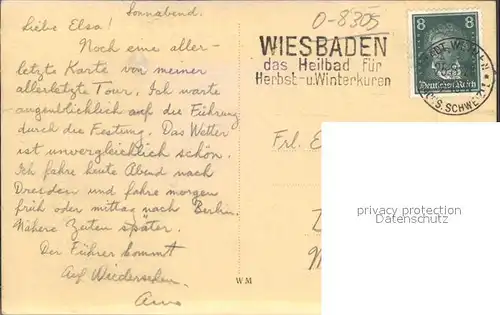 Sonnabend.
Liebe Elsa!
Noch eine aller-
letzte Karte von meiner
allerletzte Tour. Ich warte
augenblicklich auf die Führung
durch die Festung. Das Wetter
ist unvergleichlich schön.
Ich fahre heute Abend nach
Dresden und fahre morgen
früh oder mittag nach Berlin.
Nähere Zeiten später.
Der Führer kommt
Auf Wiedersehen.
W M
0-8305
WIESBADEN
das Heilbad für
Herbst-u.Winterkuren
8 8
Deutsches Reich
S. SCHWEIZ
Frl. E
privacy protection
Datenschutz